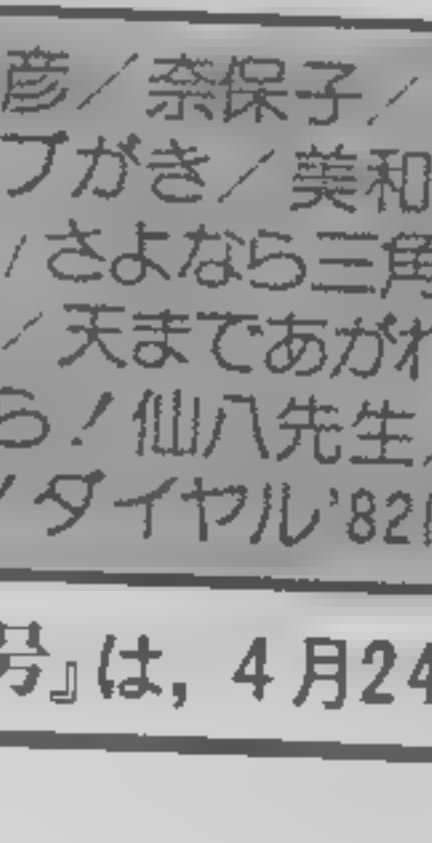 彦／奈保子／
プがき／美和
／さよなら三角
／天まであがれ
ら！仙八先生／
／ダイヤル'82
号』は，4月24